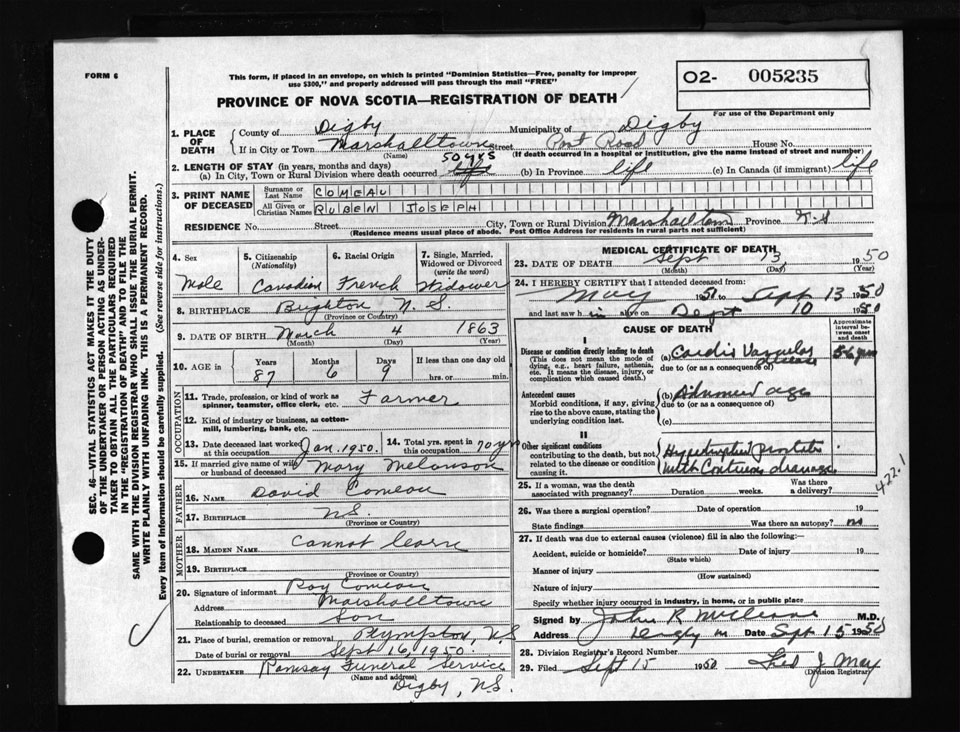 FORM 6
This form, if placed in an envelope, on which is printed "Dominion Statistics—Free, penalty for improper
use $300," and properly addressed will pass through the mail "FREE"
O2- 005235
For use of the Department only
PROVINCE OF NOVA SCOTIA—REGISTRATION OF DEATH
1. PLACE OF DEATH
County of Digby Municipality of Digby
If in City or Town Marshalltown Street Post Road House No.
(Name) (If death occurred in a hospital or institution, give the name instead of street and number)
2. LENGTH OF STAY (in years, months and days) 50 yrs
(a) In City, Town or Rural Division where death occurred life (b) In Province life (c) In Canada (if immigrant) life
3. PRINT NAME OF DECEASED
Surname or Last Name COMEAU
All Given or Christian Names RUBEN JOSEPH
RESIDENCE No. Street City, Town or Rural Division Marshalltown Province N.S
(Residence means usual place of abode. Post Office Address for residents in rural parts not sufficient)
4. Sex Male
5. Citizenship (Nationality) Canadian
6. Racial Origin French
7. Single, Married, Widowed or Divorced (write the word) Widower
8. BIRTHPLACE Bighton N.S.
(Province or Country)
9. DATE OF BIRTH March 4 1863
(Month) (Day) (Year)
10. AGE in Years 87 Months 6 Days 9 If less than one day old
hrs. or min.
OCCUPATION
11. Trade, profession, or kind of work as
spinner, teamster, office clerk, etc. Farmer
12. Kind of industry or business, as cotton-
mill, lumbering, bank, etc.
13. Date deceased last worked at this occupation Jan. 1950. 14. Total yrs. spent in this occupation 70 yrs
15. If married give name of wife
or husband of deceased Mary Melanson
FATHER
16. NAME David Comeau
17. BIRTHPLACE N.S.
(Province or Country)
MOTHER
18. MAIDEN NAME Cannot learn
19. BIRTHPLACE
(Province or Country)
20. Signature of informant Roy Comeau
Address Marshalltown
Relationship to deceased Son
21. Place of burial, cremation or removal Plympton, N.S
Date of burial or removal Sept 16, 1950.
22. UNDERTAKER Ramsay Funeral Service
(Name and address)
Digby, N.S.
MEDICAL CERTIFICATE OF DEATH
23. DATE OF DEATH Sept 13, 1950
(Month) (Day) (Year)
24. I HEREBY CERTIFY that I attended deceased from:
May 1950 to Sept 13 1950
and last saw him alive on Sept 10 1950
CAUSE OF DEATH
Approximate interval between onset and death
I
Disease or condition directly leading to death (a) Cardio Vascular disease 5-6 years
(This does not mean the mode of
dying, e.g., heart failure, asthenia,
etc. It means the disease, injury, or
complication which caused death.)
due to (or as a consequence of)
Antecedent causes
Morbid conditions, if any, giving
rise to the above cause, stating the
underlying condition last.
(b) Advanced age
due to (or as a consequence of)
(c)
II
Other significant conditions
contributing to the death, but not
related to the disease or condition
causing it.
Hypertrophied Prostate
with Continuous drainage
422.1
25. If a woman, was the death
associated with pregnancy? Duration weeks. Was there a delivery?
26. Was there a surgical operation? Date of operation 19
State findings Was there an autopsy? no
27. If death was due to external causes (violence) fill in also the following:—
Accident, suicide or homicide? Date of injury 19
(State which)
Manner of injury
(How sustained)
Nature of injury
Specify whether injury occurred in industry, in home, or in public place
Signed by John R McCleave M.D.
Address Digby Date Sept 15 1950
28. Division Registrar's Record Number
29. Filed Sept 15 1950 Fred J May
(Division Registrar)
SEC. 46—VITAL STATISTICS ACT MAKES IT THE DUTY
OF THE UNDERTAKER OR PERSON ACTING AS UNDER-
TAKER TO OBTAIN ALL THE PARTICULARS REQUIRED
IN THE "REGISTRATION OF DEATH" AND TO FILE THE
SAME WITH THE DIVISION REGISTRAR WHO SHALL ISSUE THE BURIAL PERMIT.
WRITE PLAINLY WITH UNFADING INK. THIS IS A PERMANENT RECORD.
Every item of information should be carefully supplied. (See reverse side for instructions.)